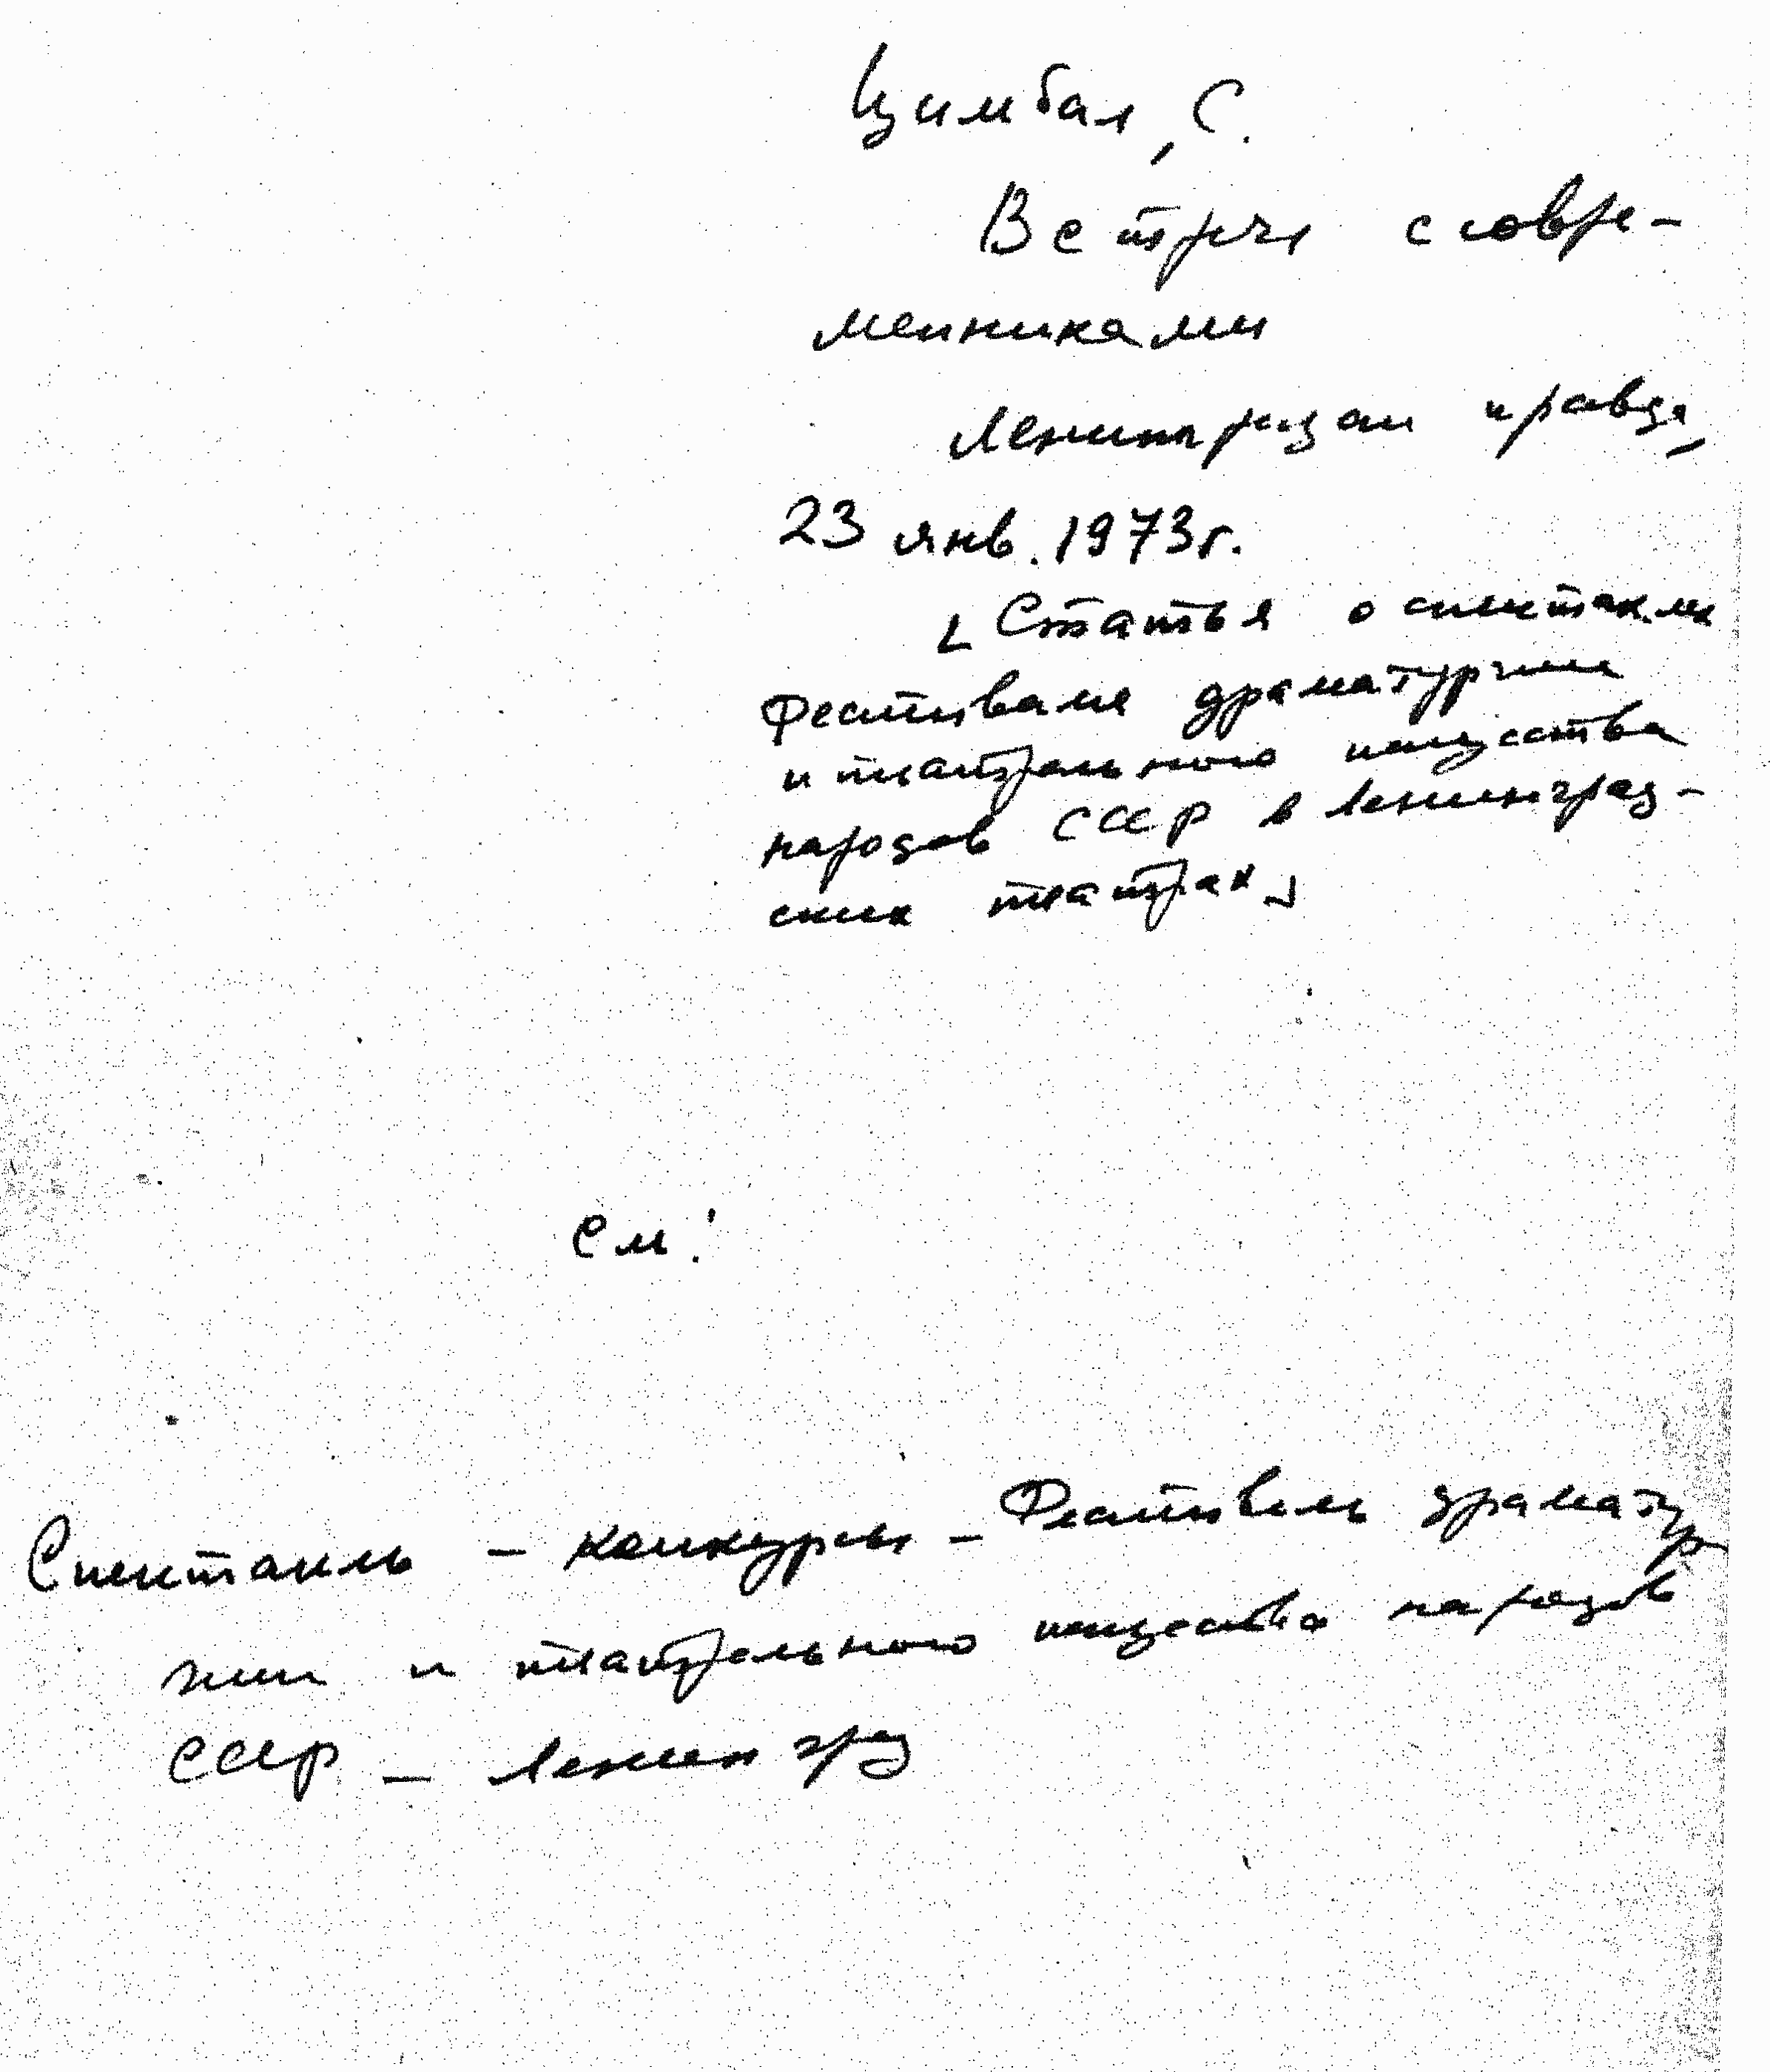 Цимбал, С.
Встречи с совре-
менниками
Ленинградская правда,
23 янв. 1973г.
[Статья о спектаклях
Фестиваля драматургии
и театрального искусства
народов СССР в Ленинград-
ских театрах]
См:
Спектакль - конкурсы - Фестиваль драматур
гии и театрального искусства народов
СССР - Ленинград